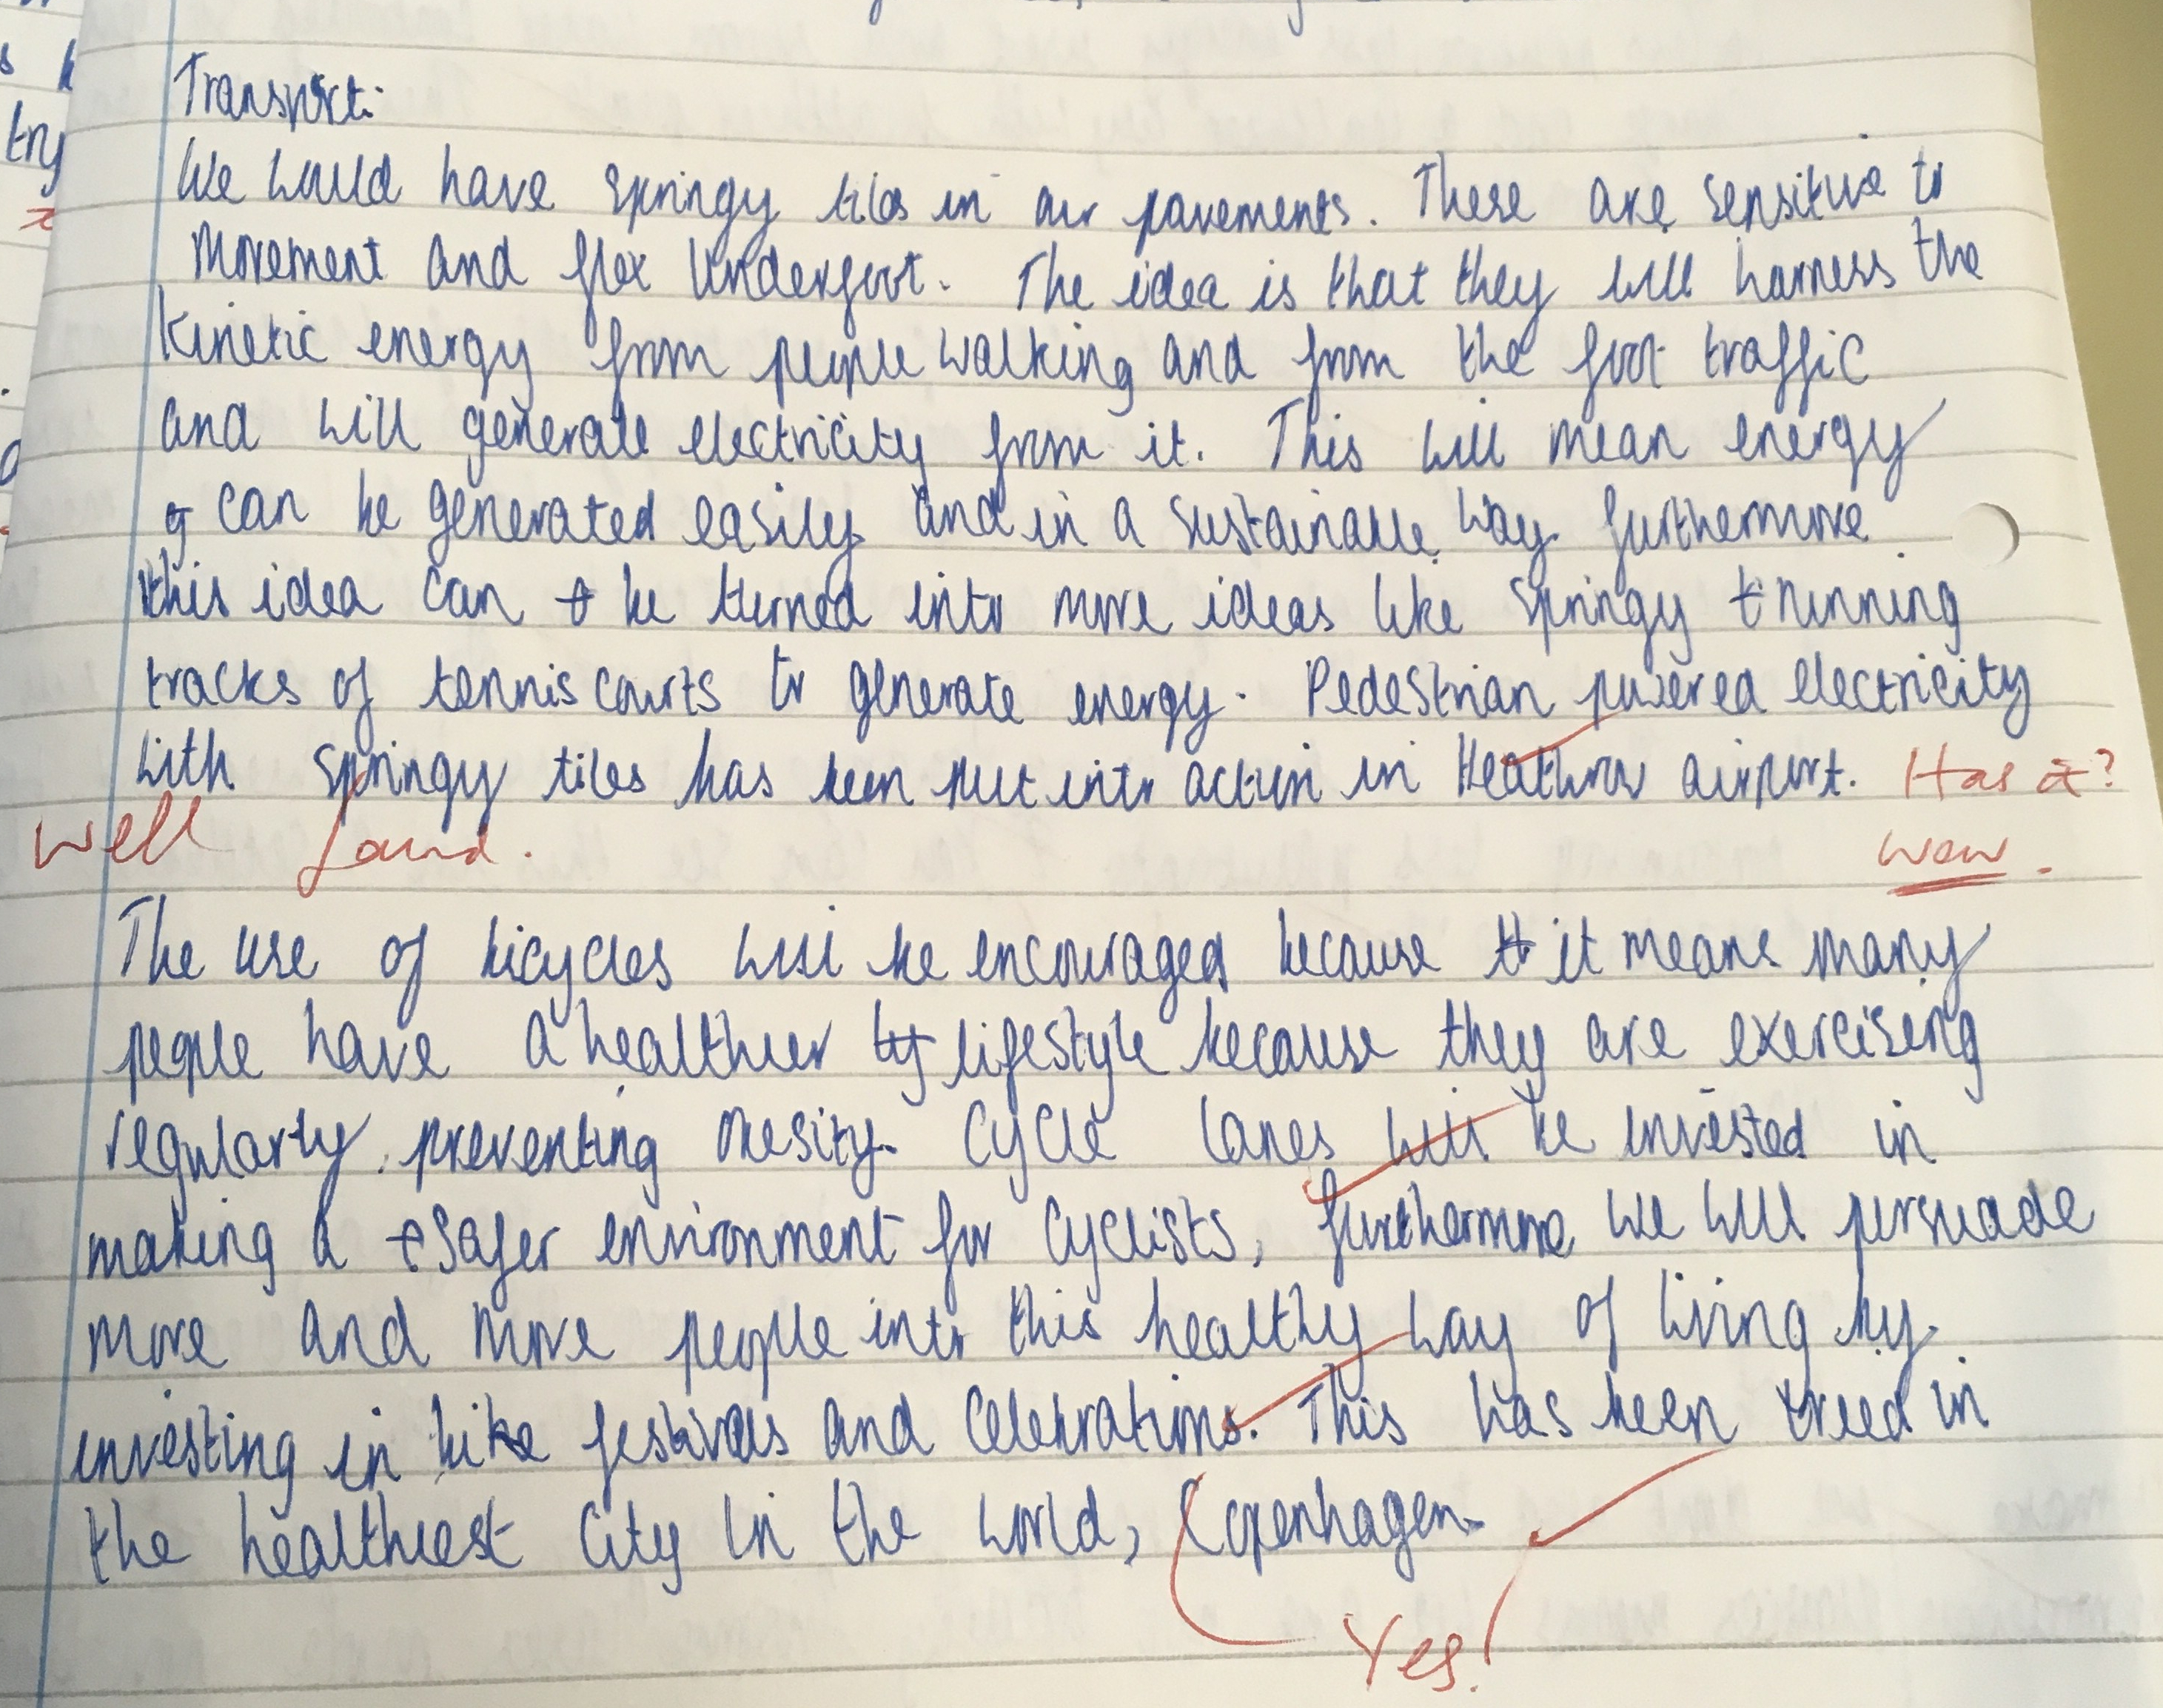 try
Transport:
We would have springy tiles in our pavements. These are sensitive to
movement and flex underfoot. The idea is that they will harness the
kinetic energy from people walking and from the foot traffic
and will generate electricity from it. This will mean energy
can be generated easily and in a sustainable way. furthermore
this idea can be turned into more ideas like springy running
tracks of tennis courts to generate energy. Pedestrian powered electricity
with springy tiles has been put into action in Heathrow airport. Has it?
Well found. wow.
The use of bicycles will be encouraged because it means many
people have a healthier lifestyle because they are exercising
regularly, preventing obesity. Cycle lanes will be invested in
making a safer environment for cyclists, furthermore we will persuade
more and more people into this healthy way of living by
investing in bike festivals and celebrations. This has been treed in
the healthiest city in the world, Copenhagen.
Yes!